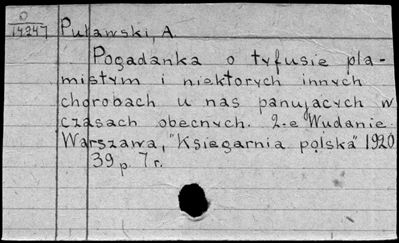 0
14247
Puławski, A.
Pogadanka o tyfusie pla-
mistym i niektorych innych
chorobach u nas panujacych w
czasach obecnych. 2-e Wudanie.
Warszawa, "Ksiegarnia polska" 1920
39 p. 7 r.